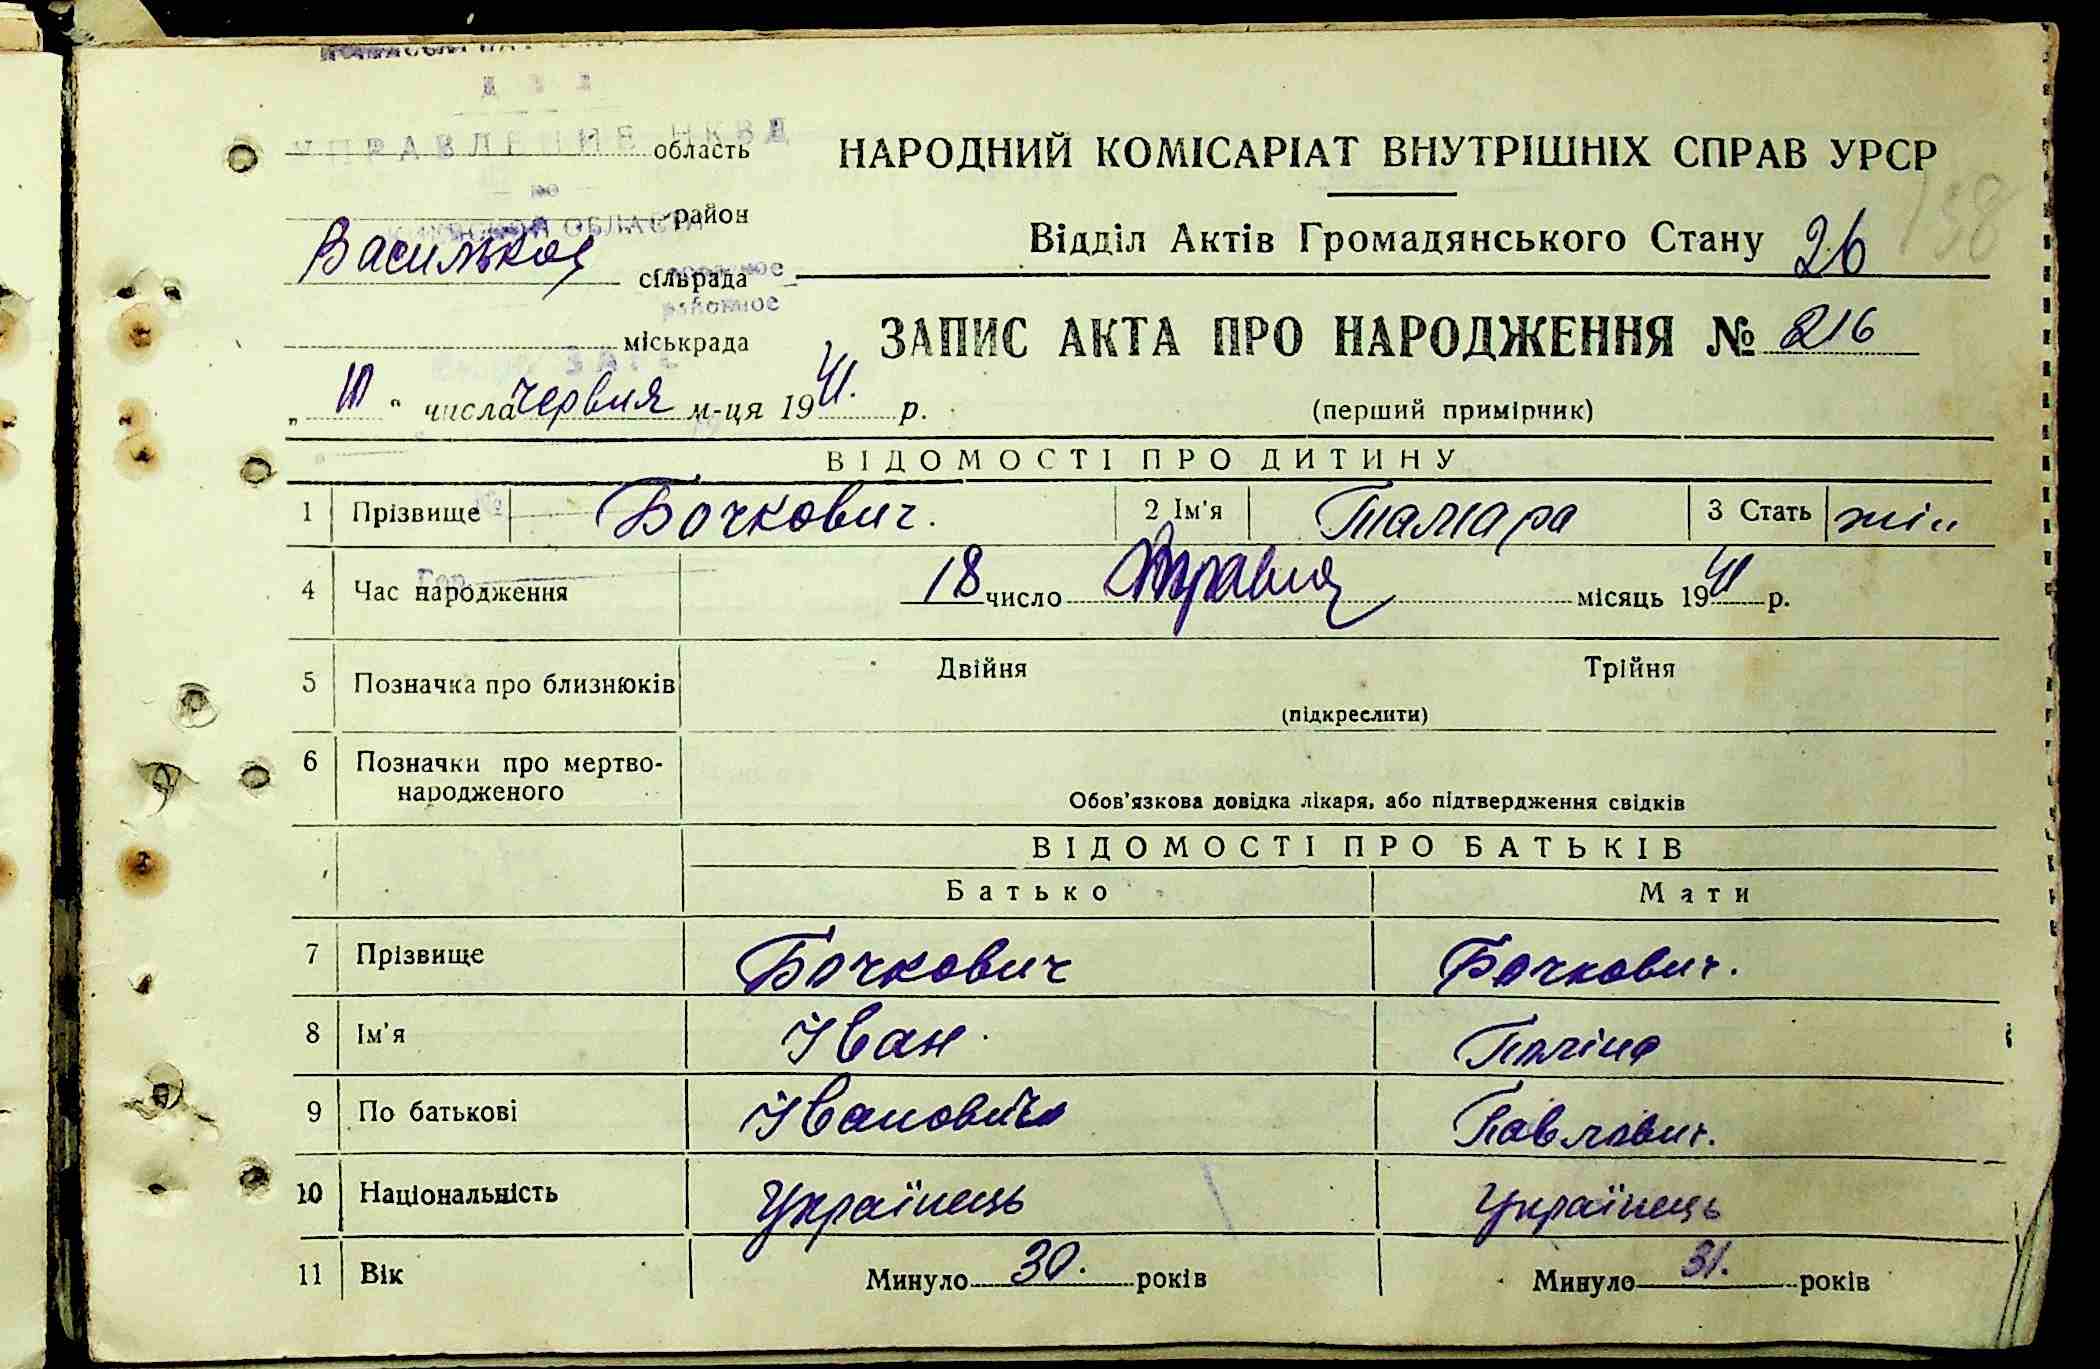 УПРАВЛЕНИЕ НКВД
область
НАРОДНИЙ КОМІСАРІАТ ВНУТРІШНІХ СПРАВ УРСР
158
по
район
ОБЛАСТИ
Відділ Актів Громадянського Стану 26
Васильков
сільрада
районное
міськрада
ЗАПИС АКТА ПРО НАРОДЖЕННЯ № 216
" числа червня м-ця 1941. р.
(перший примірник)
ВІДОМОСТІ ПРО ДИТИНУ
1 Прізвище Бочкович. 2 Ім'я Тамара 3 Стать жін
4 Час народження 18 число Травня місяць 1941 р.
5 Позначка про близнюків Двійня Трійня
(підкреслити)
6 Позначки про мертво-
народженого
Обов'язкова довідка лікаря, або підтвердження свідків
ВІДОМОСТІ ПРО БАТЬКІВ
Батько Мати
7 Прізвище Бочкович Бочкович.
8 Ім'я Іван Поліна
9 По батькові Іванович Павлович.
10 Національність Українець Українець
11 Вік Минуло 30. років Минуло 31. років